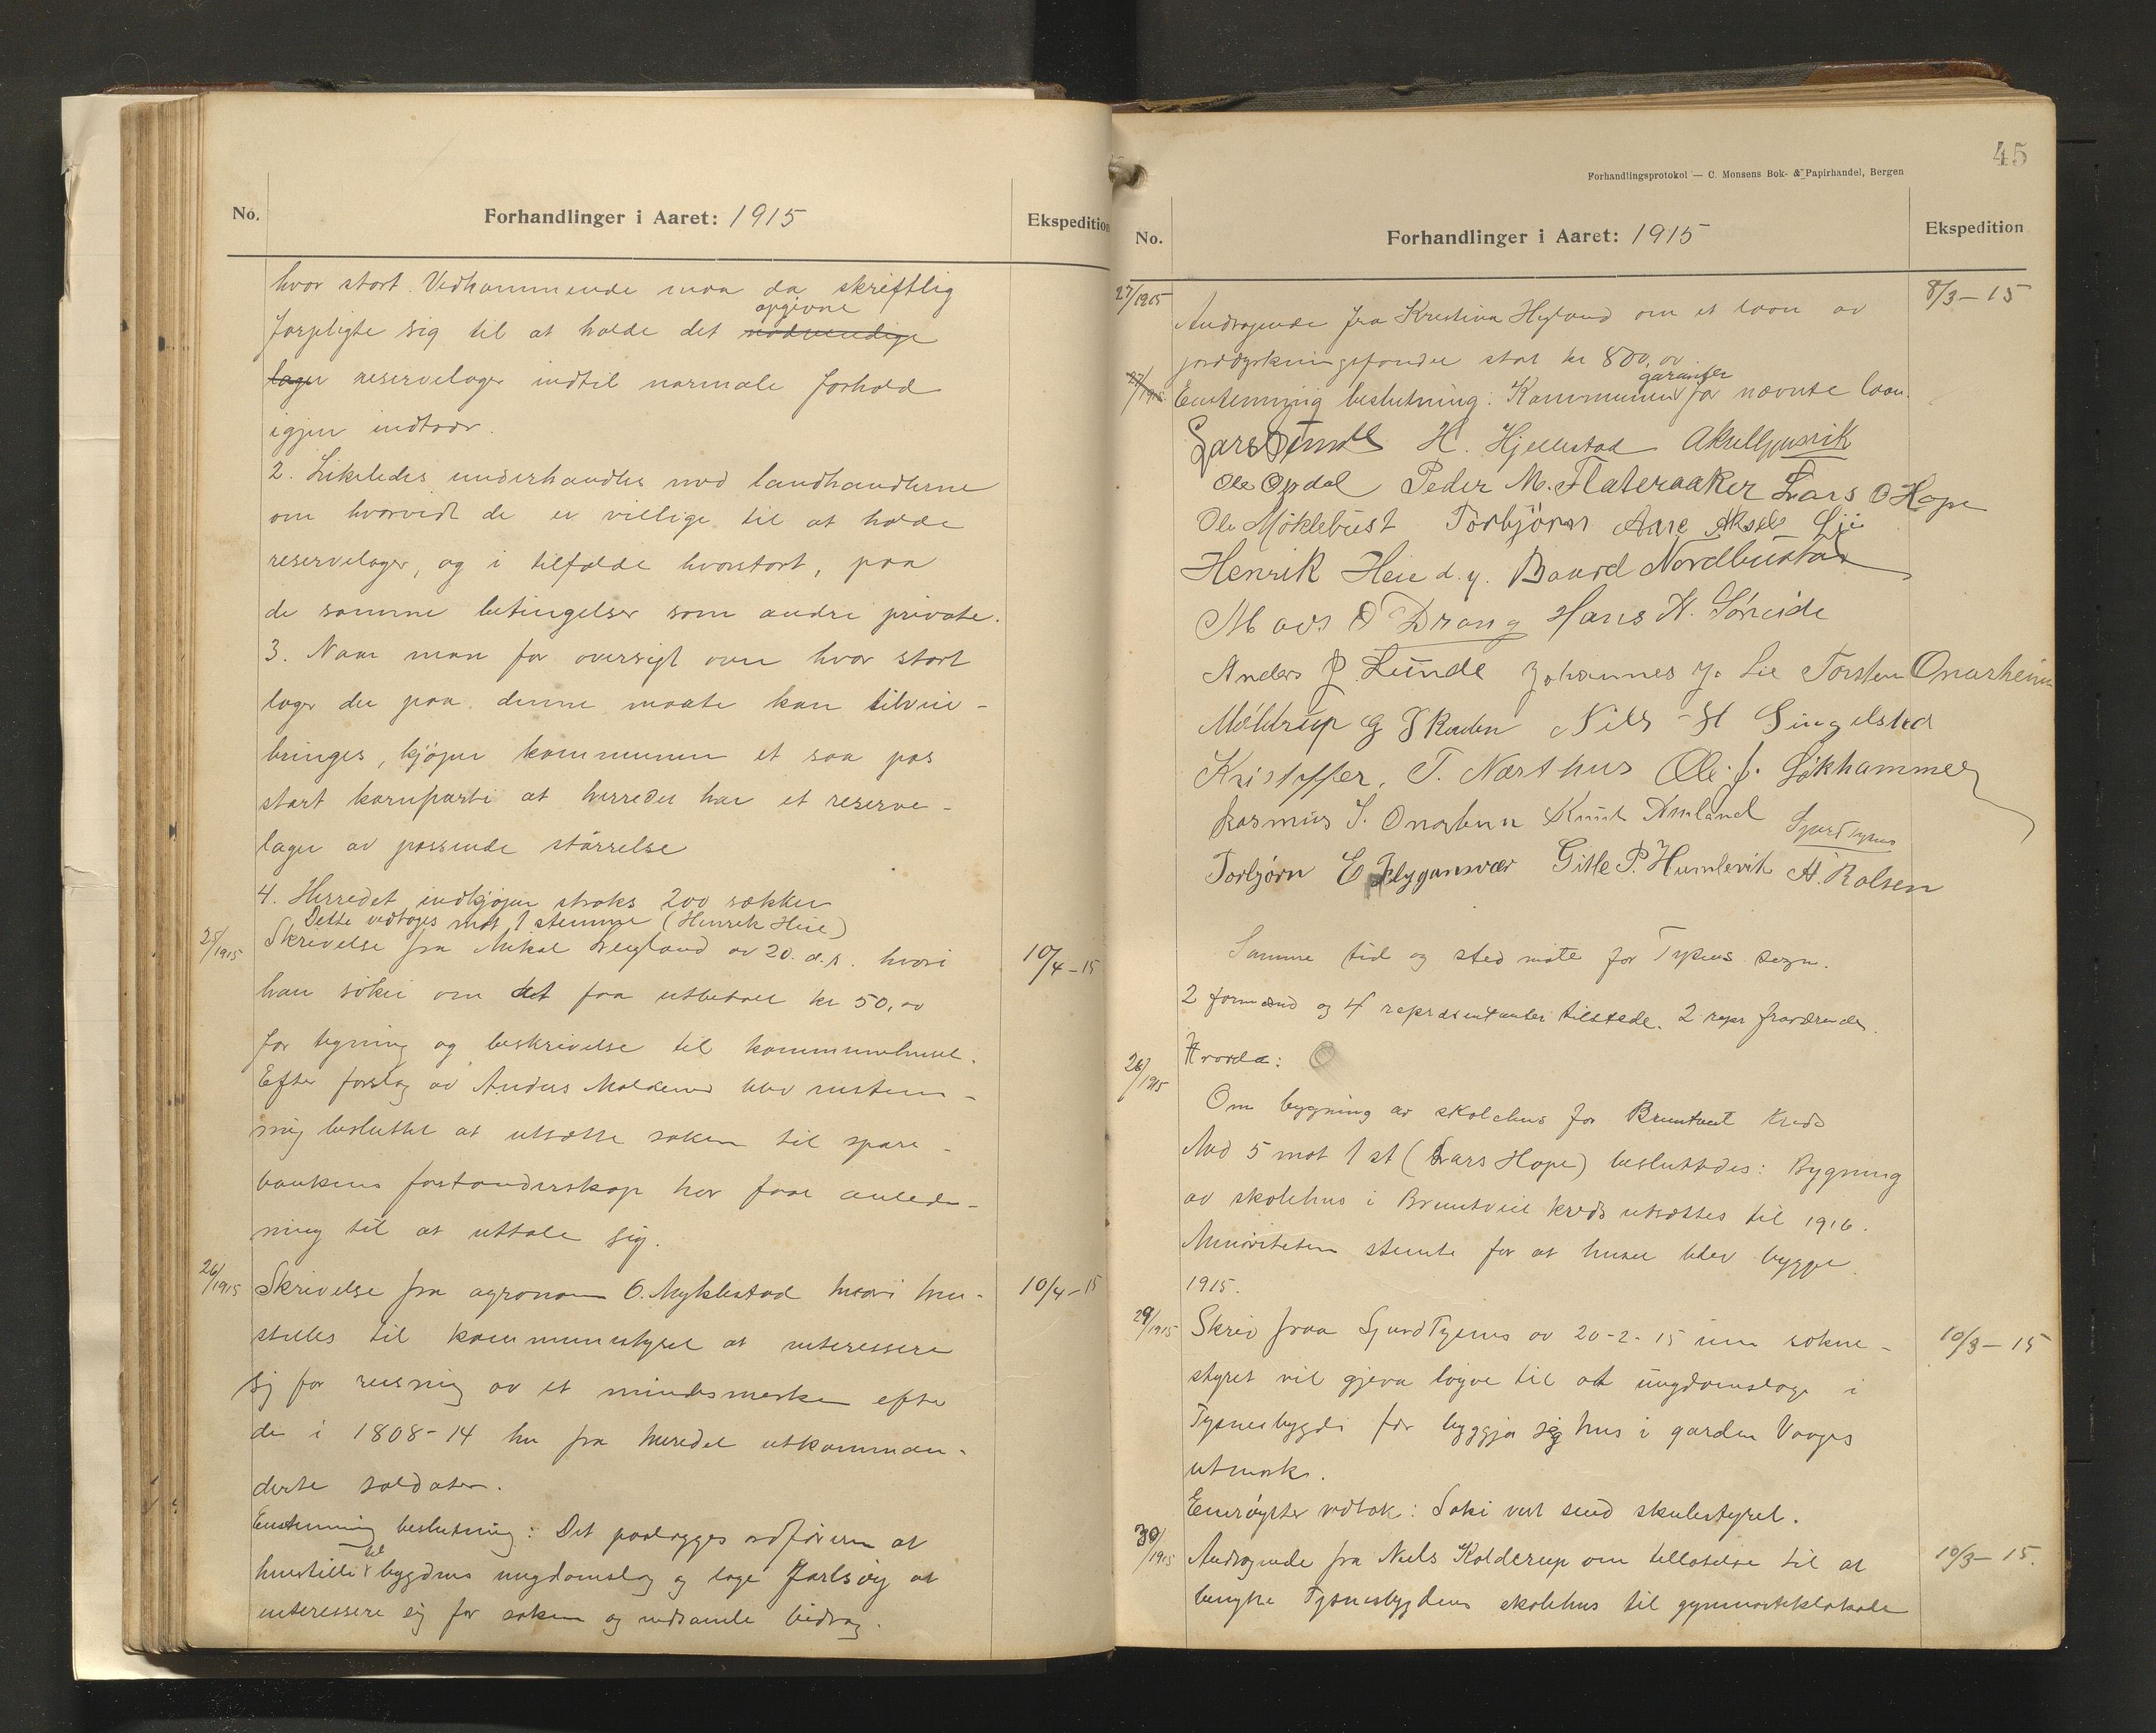 No.
Forhandlinger i Aaret: 1915
Ekspedition
hvor stort. Vedkommende maa da skriftlig
opgivne
forpligte sig til at holde det nødvendige
lager reservelager indtil normale forhold
igjen indtrær.
2. Likeledes underhandles med landhandlerne
om hvorvidt de er villige til at holde
reservelager, og i tilfælde hvorstort, paa
de samme betingelser som andre private.
3. Naar man får oversigt over hvor stort
lager der paa denne maate kan tilveie-
bringes, kjøper kommunen et saa pas
stort kornparti at herredet har et reserve-
lager av passende størrelse
4. Herredet indkjøper straks 200 sækker
Dette vedtoges mot 1 stemme (Henrik Heie)
25/1915
Skrivelse fra Mikal av 20. d.s. hvori
10/4-15
han søker om at faa utbetalt kr 50,00
for tegning og beskrivelse til kommunehuset.
Efter forslag av Anders blev enstem-
mig besluttet at utsætte saken til spare-
bankens forstanderskap har faat anled-
ning til at uttale sig.
26/1915
Skrivelse fra agronom O. Myklestad hvori hen-
10/4-15
stilles til kommunestyret at interessere
sig for reisning av et mindesmerke efter
de i 1808-14 her fra herredet utkomman-
derte soldater.
Enstemmig beslutning: Det paalægges ordføreren at
til
henstille bygdens ungdomslag og lage at
interessere sig for saken og indsamle bidrag.
45
Forhandlingsprotokol — C. Monsens Bok- & Papirhandel, Bergen
No.
Forhandlinger i Aaret: 1915
Ekspedition
27/1915
8/3-15
Andragende fra Kristina Hygland om et laan av
jorddyrkningsfondet stort kr 800,00.
garanterer
27/1915
Enstemmig beslutning: Kommunen for nævnte laan.
Lars H. Hjellestad
Ole Opdal Peder M. Flateraaker Lars O Hope
Ole Møklebust Torbjørn Aare Aksel Lie
Henrik Heie d.y. Baard Nordbustad
Mads O Drang Hans N. Søreide
Anders P. Lunde Johannes J. Lie Torsten Onarheim
Møldrup G Skaden Nils H Singelstad
Kristoffer T. Næsthus Ole J. Løkhammer
Rasmus S. Onarheim Knut Amland Sjurd Tysnes
Torbjørn E Flygansvær Gitle P. Humlevik A. Rolsen
Samme tid og sted møte for Tysnes sogn.
2 formænd og 4 repræsentanter tilstede. 2 repr fraværende.
28/1915
Om bygning av skolehus for Bruntveit Kreds
Med 5 mot 1 st (Lars Hope) besluttedes: Bygning
av skolehus i Bruntveit kreds utsættes til 1916.
Minoriteten stemte for at huset blev bygget
1915.
29/1915
Skriv fraa Sjurd Tysnes av 20-2-15 um sokne-
10/3-15
styret vil gjeva løyve til at ungdomslage i
Tysnesbygdi fær byggja seg hus i garden Vaages
utmark.
Einrøystes vedtak: Saki vert send skulestyret.
30/1915
Andragende fra Niels Kolderup om tillatelse til at
10/3-15.
benytte Tysnesbygdens skolehus til gymnastiklokale